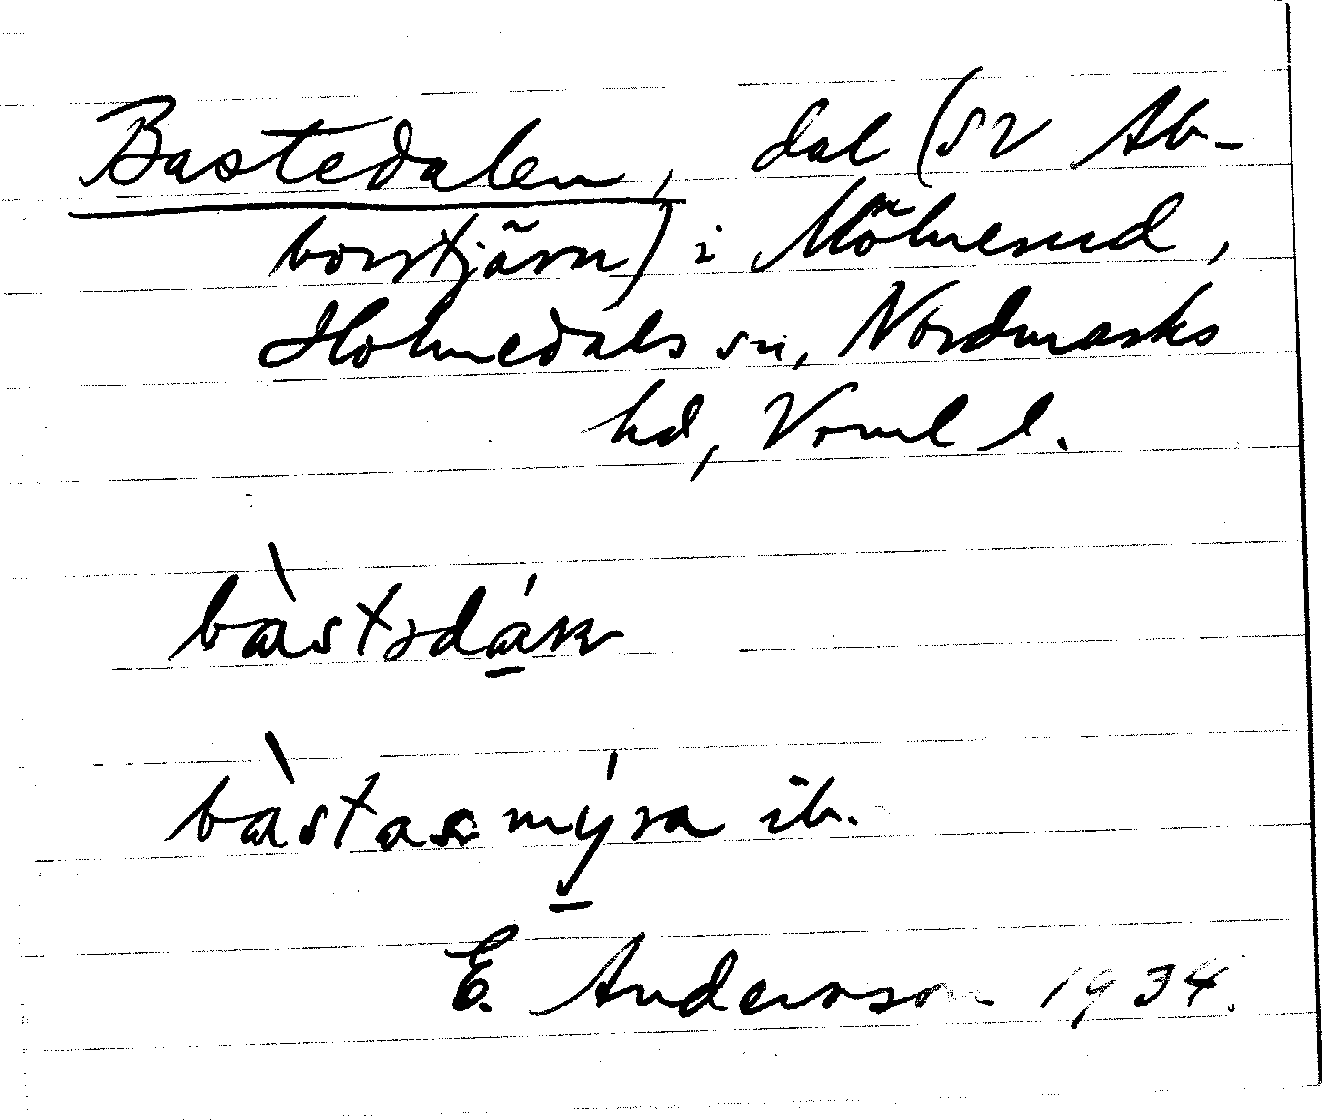 Bastedalen, dal (SV Ab-
borrtjärn) i Mölnerud,
Holmedals sn, Nordmarks
hd, Vrml l.
bàstədáɴ
bàstas mýra ib.
E. Andersson 1934.